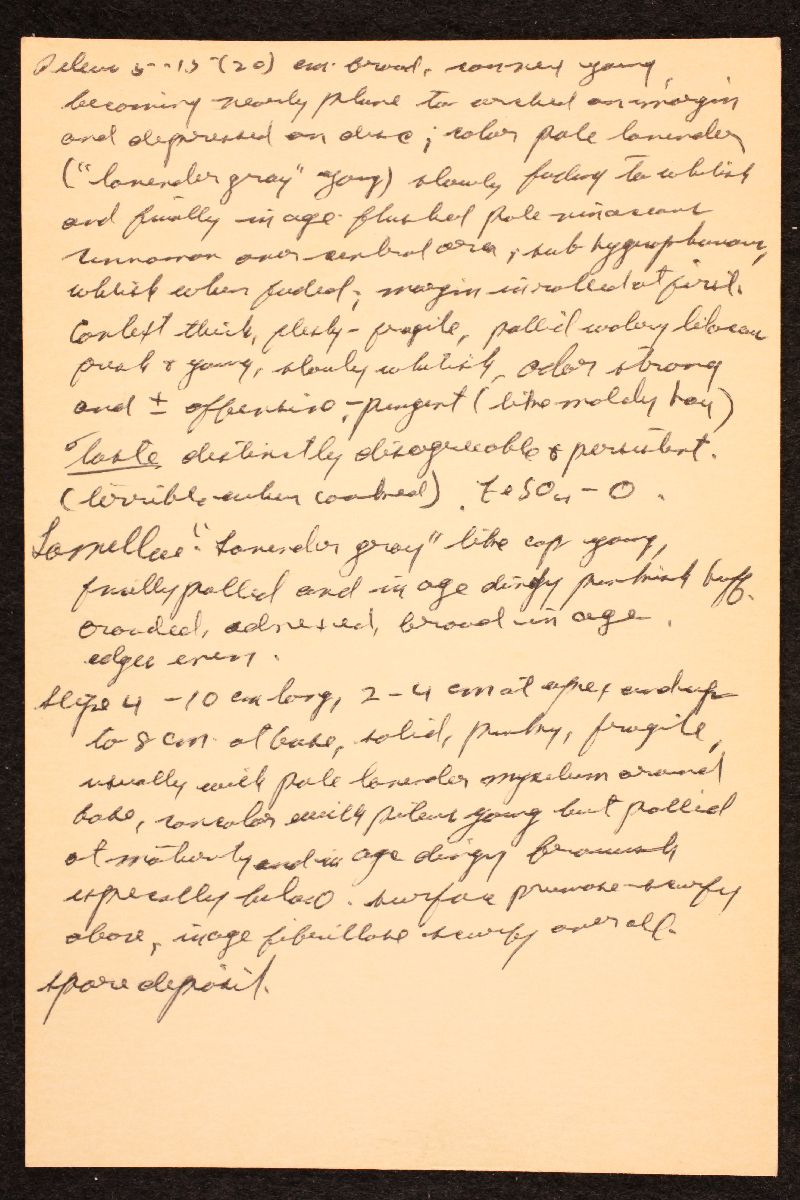 Pileus 5-15-(20) cm broad, convex young,
becoming nearly plane to arched on margin
and depressed on disc; color pale lavender
("lavender gray" young) slowly fading to whitish
and finally in age flushed pale vinaceous
cinnamon over central area, subhygrophanous,
whitish when faded; margin inrolled at first.
Context thick, fleshy-fragile, pallid watery lilaceous
fresh & young, slowly whitish, odor strong
and ± offensive,-pungent (like moldy hay)
Taste distinctly disagreeable & persistent.
(terrible when cooked). FeSO4 - O.
Lamellae "lavender gray" like cap young,
finally pallid and in age dingy pinkish buff.
crowded, adnexed, broad in age.
edges even.
Stipe 4-10 cm long, 2-4 cm at apex and up
to 8 cm at base, solid, fragile,
usually with pale lavender mycelium around
base, concolor with pileus young but pallid
at maturity and in age dingy brownish
especially below. surface pruinose-scurfy
above, in age fibrillose scurfy over all.
Spore deposit.